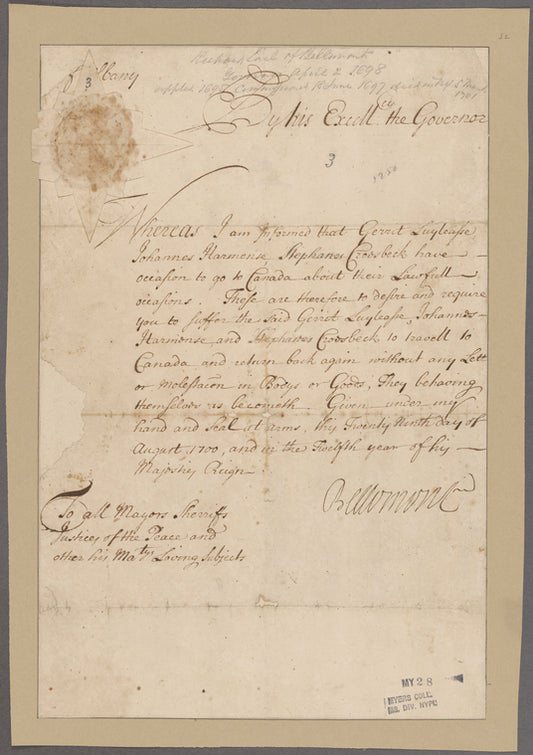 32
Albany
3
Richard Earl of Bellomont
Gov April 2 1698
appted 1695 Commissioned 18 June 1697 died 5 March
1701
By his Excell.cy the Governor
3
1250
Whereas I am Informed that Gerrit Luyleasse
Johannes Harmense, Stephanes Croosbeck have
occasion to go to Canada about their Lawfull
occasions. These are therefore to desire and require
you to suffer the said Gerrit Luyleasse, Johannes
Harmense and Stephanes Croosbeck to travell to
Canada and return back again without any Lett
or molestacon in Bodys or Goods, They behaving
themselves as becometh. Given under my
hand and Seal at arms, thy Twenty Ninth day of
August, 1700, and in the Twelfth year of his
Majesties Reign
Bellomont
To all Mayors Sherrifs
Justices of the Peace and
other his Ma.tys Loving Subjects
MY 28
MYERS COLL.
MS. DIV. NYPL